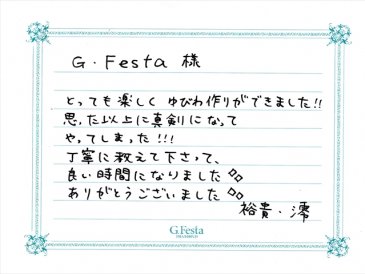 G・Festa 様
とっても楽しく ゆびわ作りができました!!
思った以上に真剣になって
やってしまった!!!
丁寧に教えて下さって、
良い時間になりました
ありがとうございました
裕貴・澪
G.Festa